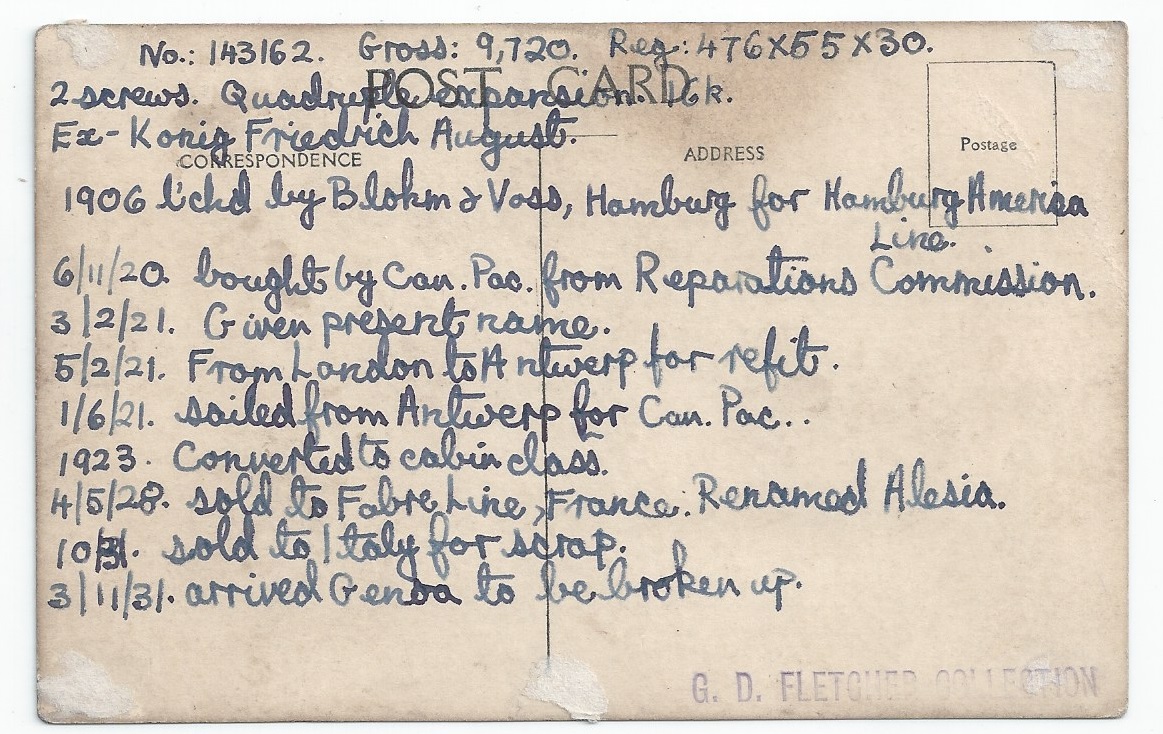 No.: 143162. Gross: 9,720. Reg: 476X55X30.
POST CARD
2 screws. Quadruple expansion. 16k.
Ex-Konig Friedrich August.
CORRESPONDENCE
ADDRESS
Postage
1906 l'chd by Blohm & Voss, Hamburg for Hamburg America
Line.
6/11/20. bought by Can. Pac. from Reparations Commission.
3/2/21. Given present name.
5/2/21. From London to Antwerp for refit.
1/6/21. sailed from Antwerp for Can. Pac..
1923. Converted to cabin class.
4/5/28. sold to Fabre Line, France. Renamed Alesia.
10/31. sold to Italy for scrap.
3/11/31. arrived Genoa to be broken up.
G. D. FLETCHER COLLECTION